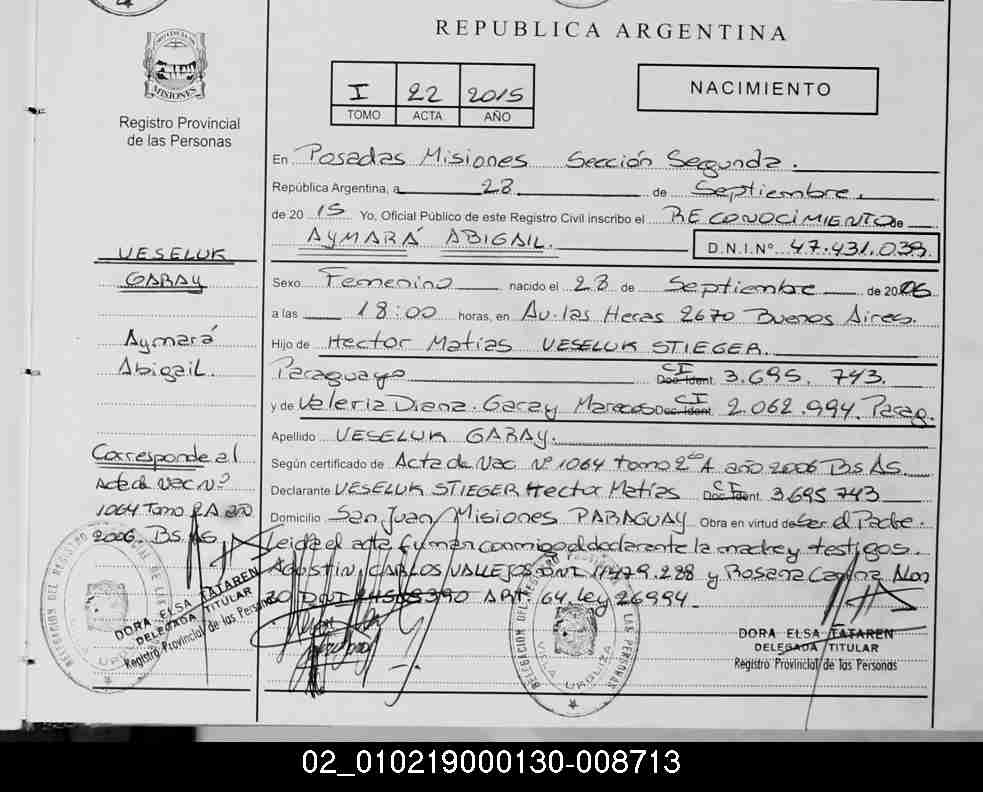 REPUBLICA ARGENTINA
MISIONES
Registro Provincial
de las Personas
I 22 2015
TOMO ACTA AÑO
NACIMIENTO
En Posadas Misiones Sección Segunda.
República Argentina, a 28 de Septiembre.
de 2015 Yo, Oficial Público de este Registro Civil inscribo el RECONOCIMIENTO de
AYMARÁ ABIGAIL. D.N.I.Nº 47.431.038
Sexo Femenino nacido el 28 de Septiembre de 2006
a las 18:00 horas, en Av. las Heras 2670 Buenos Aires.
Hijo de Hector Matías VESELUK STIEGER.
Paraguayo CI Doc. Ident. 3.695.743.
y de Valeria Diana. Garay CI Doc. Ident. 2.062.994. Parag.
Apellido VESELUK GARAY.
Según certificado de Acta de Nac. Nº 1064 tomo 2 A año 2006 Bs. AS.
Declarante VESELUK STIEGER Hector Matías CI Doc. Ident. 3.695 743
Domicilio San Juan Misiones PARAGUAY Obra en virtud de Ser el Padre.
Leida el acta firman conmigo el declarante la madre y testigos.
AGUSTIN CARLOS VALLEJOS DNI y Rosana
DNI ART. 64. Ley 26994.
VESELUK
GARAY
Aymará
Abigail.
Corresponde al
Acta de Nac Nº
1064 Tomo 2 A año
2006. Bs. AS
DORA ELSA TATAREN
DELEGADA TITULAR
Registro Provincial de las Personas
DELEGACION DEL REGISTRO
VILLA URQUIZA
LAS PERSONAS
DORA ELSA TATAREN
DELEGADA TITULAR
Registro Provincial de las Personas
02_010219000130-008713